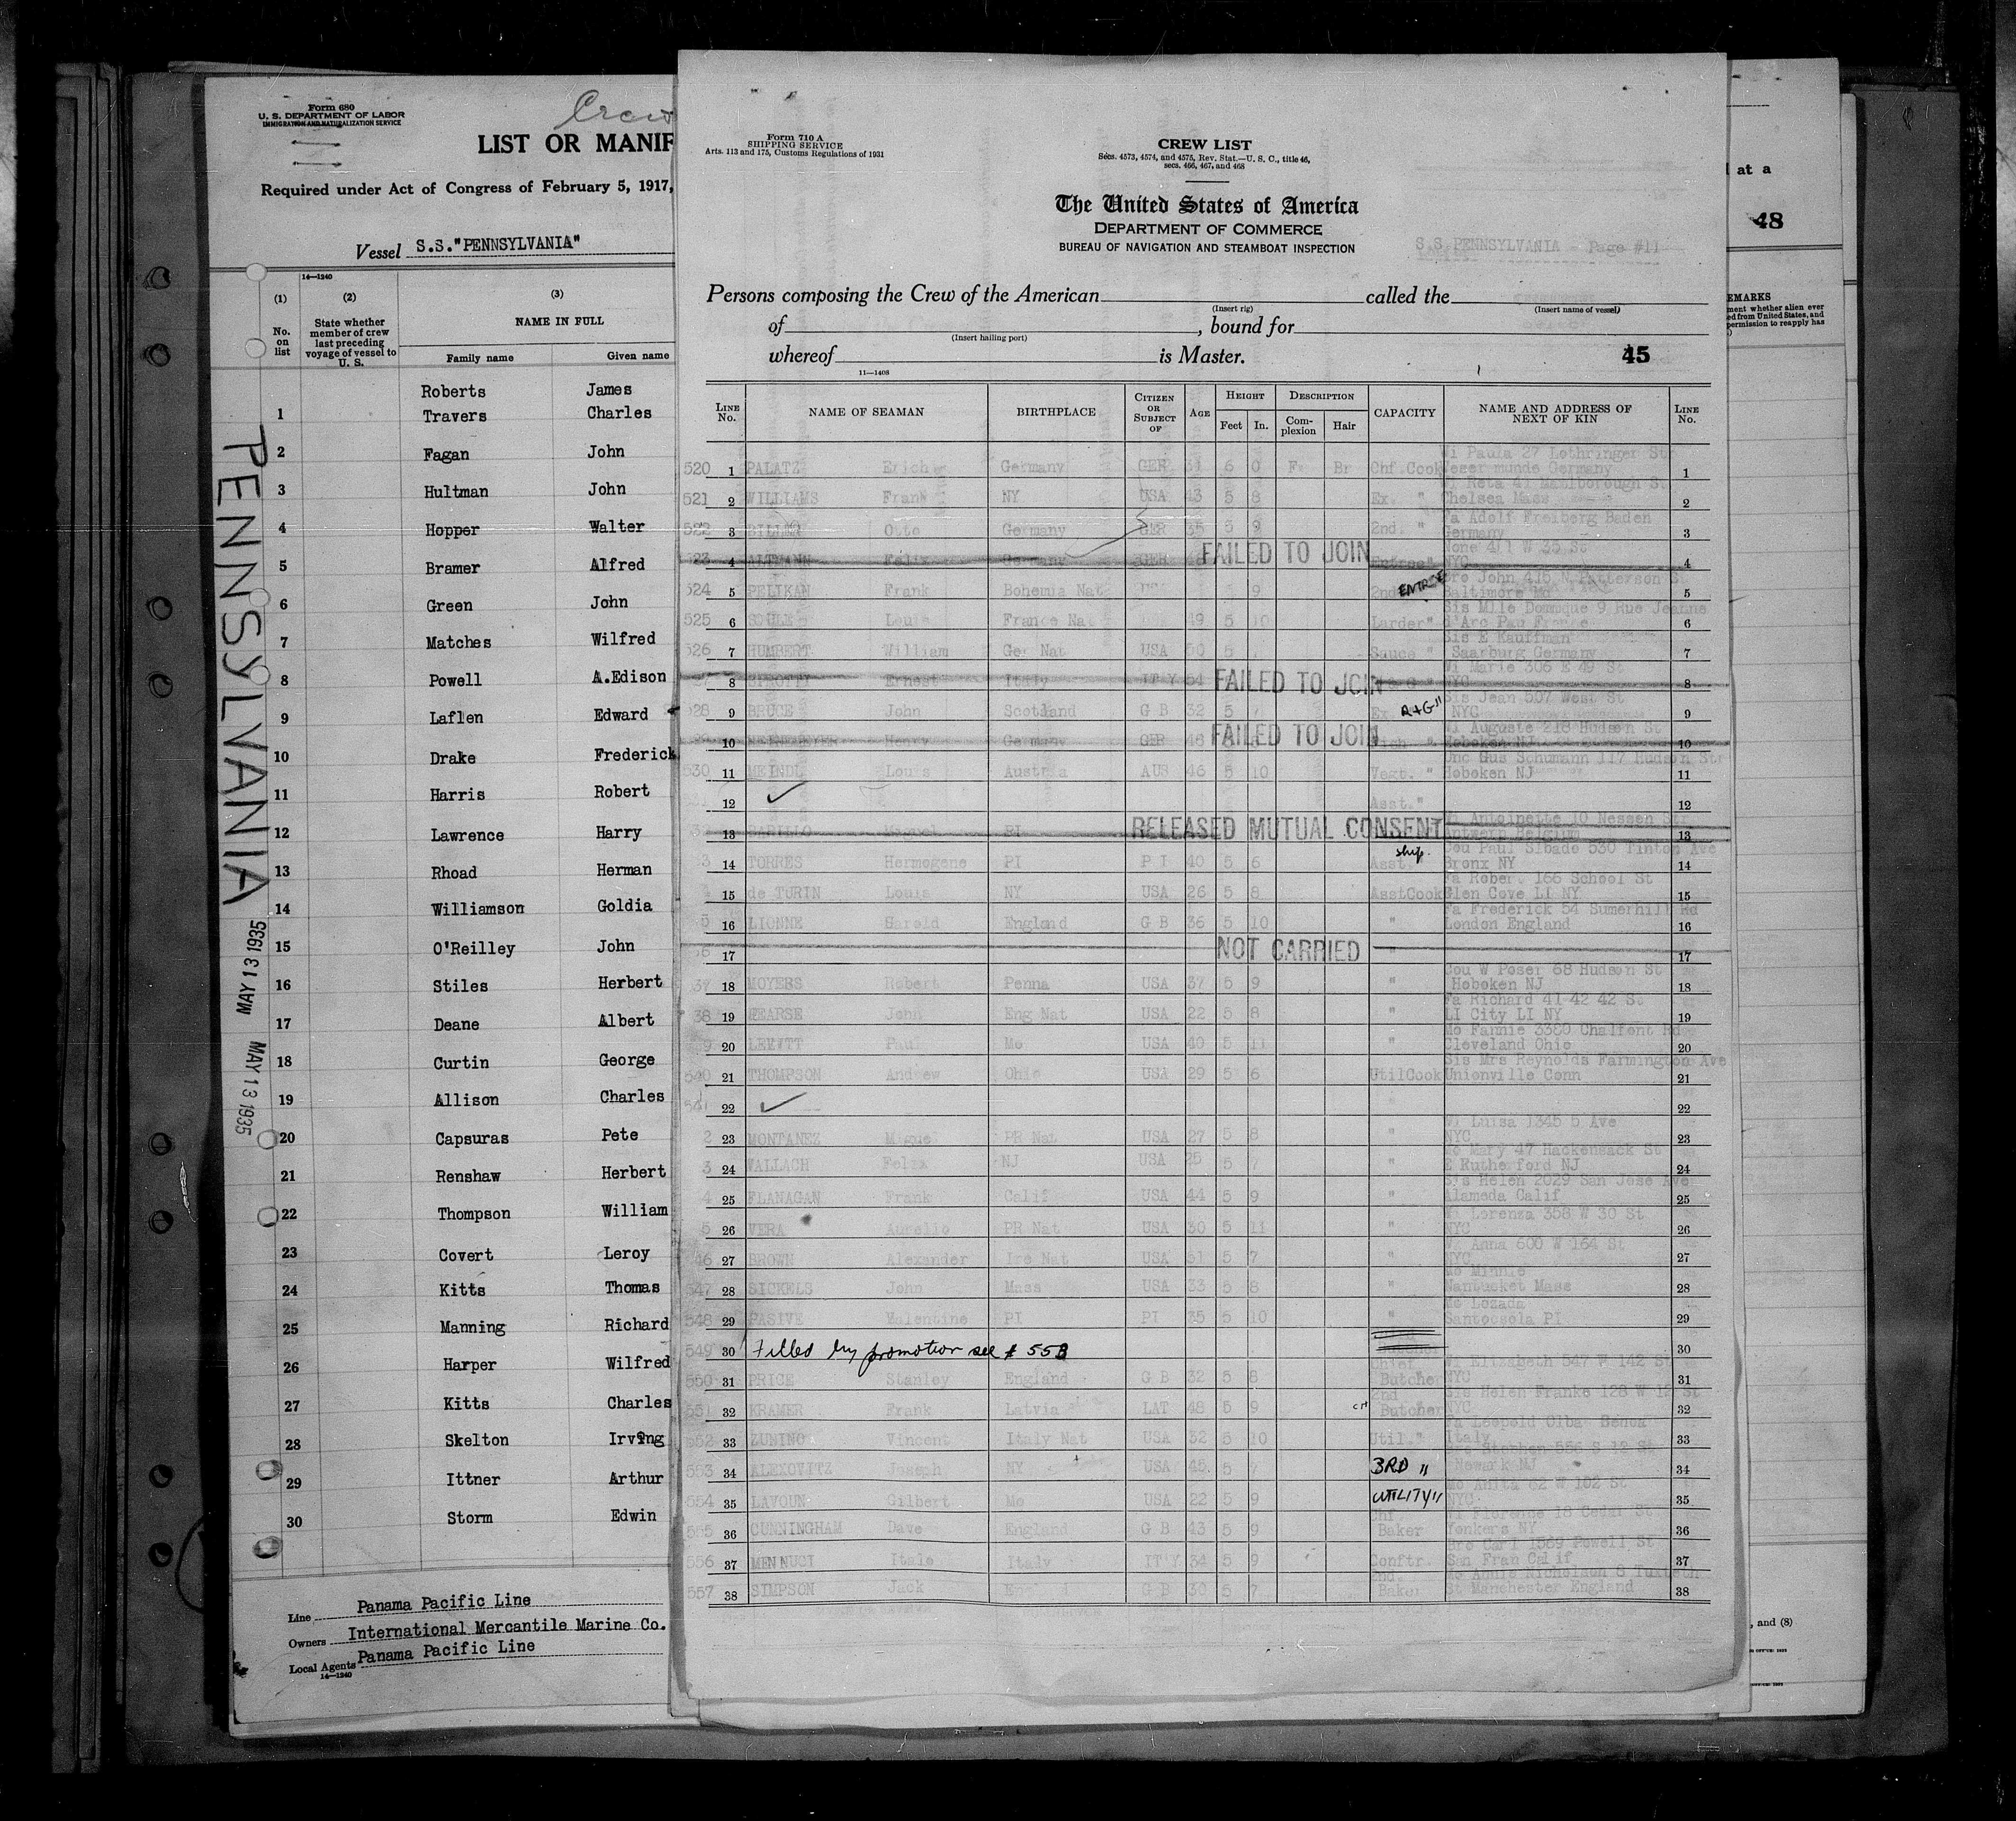 Form 680
U. S. DEPARTMENT OF LABOR
IMMIGRATION AND NATURALIZATION SERVICE
Crew
LIST OR MANIF
Required under Act of Congress of February 5, 1917,
Vessel S.S."PENNSYLVANIA"
14—1240
(1) (2) (3)
No. on list
State whether member of crew last preceding voyage of vessel to U. S.
NAME IN FULL
Family name Given name
Roberts James
1 Travers Charles
2 Fagan John
3 Hultman John
4 Hopper Walter
5 Bramer Alfred
6 Green John
7 Matches Wilfred
8 Powell A.Edison
9 Laflen Edward
10 Drake Frederick
11 Harris Robert
12 Lawrence Harry
13 Rhoad Herman
14 Williamson Goldia
15 O'Reilley John
16 Stiles Herbert
17 Deane Albert
18 Curtin George
19 Allison Charles
20 Capsuras Pete
21 Renshaw Herbert
22 Thompson William
23 Covert Leroy
24 Kitts Thomas
25 Manning Richard
26 Harper Wilfred
27 Kitts Charles
28 Skelton Irving
29 Ittner Arthur
30 Storm Edwin
Line Panama Pacific Line
Owners International Mercantile Marine Co.
Local Agents Panama Pacific Line
14—1240
PENNSYLVANIA
MAY 13 1935
MAY 13 1935
Form 710 A
SHIPPING SERVICE
Arts. 113 and 175, Customs Regulations of 1931
CREW LIST
Secs. 4573, 4574, and 4575, Rev. Stat.—U. S. C., title 46,
secs. 466, 467, and 468
The United States of America
DEPARTMENT OF COMMERCE
BUREAU OF NAVIGATION AND STEAMBOAT INSPECTION
S.S. PENNSYLVANIA - Page #11
Persons composing the Crew of the American called the
(Insert rig) (Insert name of vessel)
of , bound for
(Insert hailing port)
whereof is Master.
11—1408
45
LINE No. NAME OF SEAMAN BIRTHPLACE CITIZEN OR SUBJECT OF AGE HEIGHT Feet In. DESCRIPTION Complexion Hair CAPACITY NAME AND ADDRESS OF NEXT OF KIN LINE No.
520 1 PALATZ Erich Germany GER 31 6 0 Fr Br Chf.Cook Wi Paula 27 Lothringer Str munde Germany 1
521 2 WILLIAMS Frank NY USA 43 5 8 Ex. " Wi Reta 41 Marlborough St Chelsea Mass 2
522 3 Otto Germany GER 35 5 9 2nd. " Fa Adolf Freiberg Baden Germany 3
523 4 ALTMANN Felix Germany GER FAILED TO JOIN Entree" None 411 W 35 St NYC 4
524 5 PELIKAN Frank Bohemia Nat 9 2nd ENTREE Bro John 415 N Patterson St Baltimore Md 5
525 6 SOULE Louis France Nat 49 5 10 Larder" Sis Mlle Dommque 9 Rue Jeanne d'Arc Pau France 6
526 7 HUMBERT William Ger Nat USA 50 5 Sauce " Sis E Kauffman Saarburg Germany 7
8 Ernest Italy ITY 54 FAILED TO JOIN Wi Marie 306 E 49 St NYC 8
528 9 BRUCE John Scotland G B 32 5 Ex R+G" Sis Jean 507 West St NYC 9
10 Henry Germany GER 48 FAILED TO JOIN Wi Auguste 218 Hudson St Hoboken NJ 10
530 11 MEINDL Louis Austria AUS 46 5 10 Vegt. " Unc Gus Schumann 117 Hudson Str Hoboken NJ 11
12 ✓ Asst." 12
13 RELEASED MUTUAL CONSENT Wi Antoinette 10 Nessen Str Antwerp Belgium 13
3 14 TORRES Hermogene PI P I 40 5 6 Asst. ship. Cou Paul Sibado 530 Tinton Ave Bronx NY 14
4 15 de TURIN Louis NY USA 26 5 8 AsstCook Fa Robert 166 School St Glen Cove LI NY 15
5 16 LIONNE Harold England G B 36 5 10 " Fa Frederick 54 Sumerhill Rd London England 16
17 NOT CARRIED " 17
37 18 MOYERS Robert Penna USA 37 5 9 " Cou W Poser 68 Hudson St Hoboken NJ 18
38 19 PEARSE John Eng Nat USA 22 5 8 " Fa Richard 41-42 42 St LI City LI NY 19
39 20 LEWITT Paul Mo USA 40 5 11 " Mo Fannie 3380 Chalfont Rd Cleveland Ohio 20
540 21 THOMPSON Andrew Ohio USA 29 5 6 UtilCook Sis Mrs Reynolds Farmington Ave Unionville Conn 21
541 22 ✓ 22
2 23 MONTANEZ Miguel PR Nat USA 27 5 8 " Wi Luisa 1345 5 Ave NYC 23
3 24 WALLACH Felix NJ USA 25 5 7 " Mo Mary 47 Hackensack St E Rutherford NJ 24
4 25 FLANAGAN Frank Calif USA 44 5 9 " Sis Helen 2029 San Jose Ave Alameda Calif 25
5 26 VERA Aurelio PR Nat USA 30 5 11 " Wi Lorenza 358 W 30 St NYC 26
46 27 BROWN Alexander Ire Nat USA 51 5 7 " Wi Anna 600 W 164 St NYC 27
547 28 SICKELS John Mass USA 33 5 8 " Mo Minnie Nantucket Mass 28
548 29 PASIVE Valentine PI PI 35 5 10 " Mo Lozada Santocsola PI 29
549 30 Filled by promotion see # 553 30
550 31 PRICE Stanley England G B 32 5 8 Chief Butcher Wi Elizabeth 547 W 142 St NYC 31
551 32 KRAMER Frank Latvia LAT 48 5 9 2nd Butcher Sis Helen Franke 128 W 12 St NYC 32
552 33 ZUNINO Vincent Italy Nat USA 32 5 10 Util." Fa Leopold Italy 33
553 34 ALEXOVITZ Joseph NY USA 45 5 7 3RD " Bro Stephen 556 S 12 St Newark NJ 34
554 35 LAVOUN Gilbert Mo USA 22 5 9 UTILITY " Mo Anita 62 W 102 St NYC 35
555 36 CUNNINGHAM Dave England G B 43 5 9 Chf. Baker Wi Florence 18 Cedar St Yonkers NY 36
556 37 MENNUCI Italo Italy ITY 34 5 9 Conftr. Bro Carl 1569 Powell St San Fran Calif 37
557 38 SIMPSON Jack G B 30 5 7 2nd. Baker Mo Annie Nicholson 8 St Manchester England 38
at a
48
EMARKS
ment whether alien ever
ed from United States, and
permission to reapply has
, and (8)